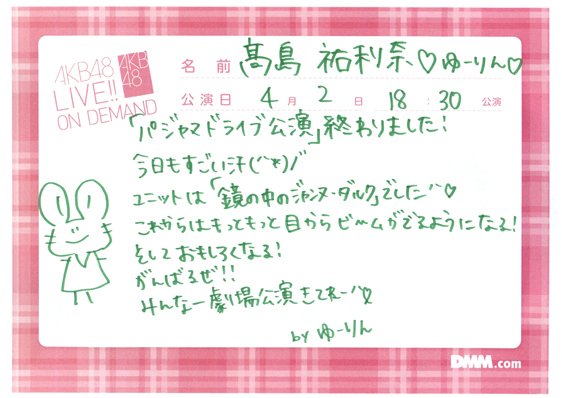 AKB48
LIVE!!
ON DEMAND
AKB
48
名 前 髙島 祐利奈 ♡ゆーりん♡
公演日 4 月 2 日 18 : 30 公演
「パジャマドライブ公演」終わりました!
今日もすごい汗
ユニットは「鏡の中のジャンヌ・ダルク」でした♡
これからはもっともっと目からビームがでるようになる!
そしておもしろくなる!
がんばるぜ!!
みんなー劇場公演きてねー♡
by ゆーりん
DMM.com